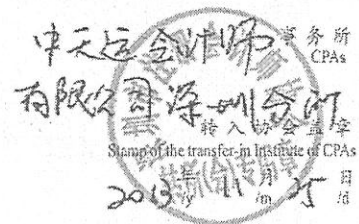 中天运会计师 事务所
CPAs
有限公司深圳分所
转入协会盖章
Stamp of the transfer-in Institute of CPAs
2013 年 11 月 25 日
/y /m /d